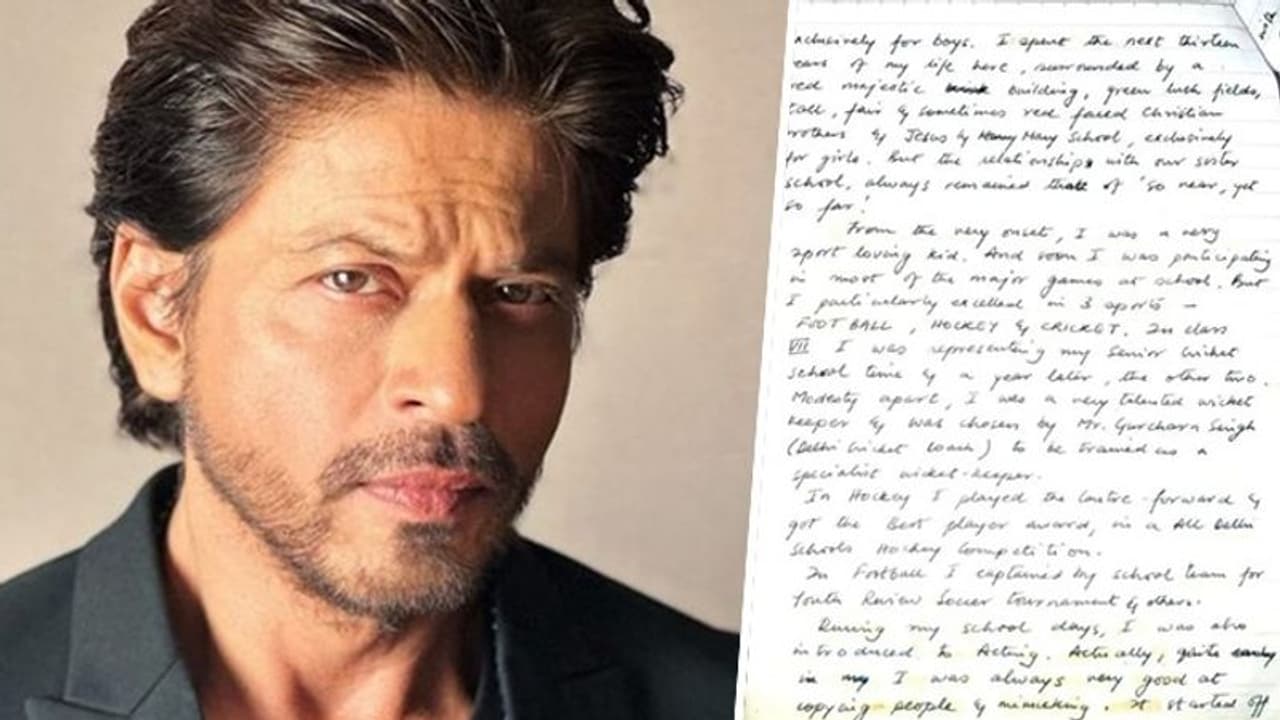 xclusively for boys. I spent the next thirteen
ears of my life here, surrounded by a
red majestic building, green lush fields,
tall, fair & sometimes red faced Christian
rothers & Jesus & Mary School, exclusively
for girls. But the relationships with our sister
school, always remained that of 'so near, yet
so far'!
From the very onset, I was a very
sport loving kid. And soon I was participating
in most of the major games at school. But
I particularly excelled in 3 sports —
FOOTBALL, HOCKEY & CRICKET. In class
VII I was representing my Senior Cricket
school time & a year later, the other two.
Modesty apart, I was a very talented wicket
keeper & was chosen by Mr. Gurcharn Singh
(Delhi Cricket Coach) to be trained as a
specialist wicket-keeper.
In Hockey I played the centre-forward &
got the Best player award, in a All Delhi
Schools Hockey Competition.
In Football I captained by school team for
Youth Review Soccer tournament & others.
During my school days, I was also
introduced to Acting. Actually, quite early
in my I was always very good at
copying people & mimicking. It started off